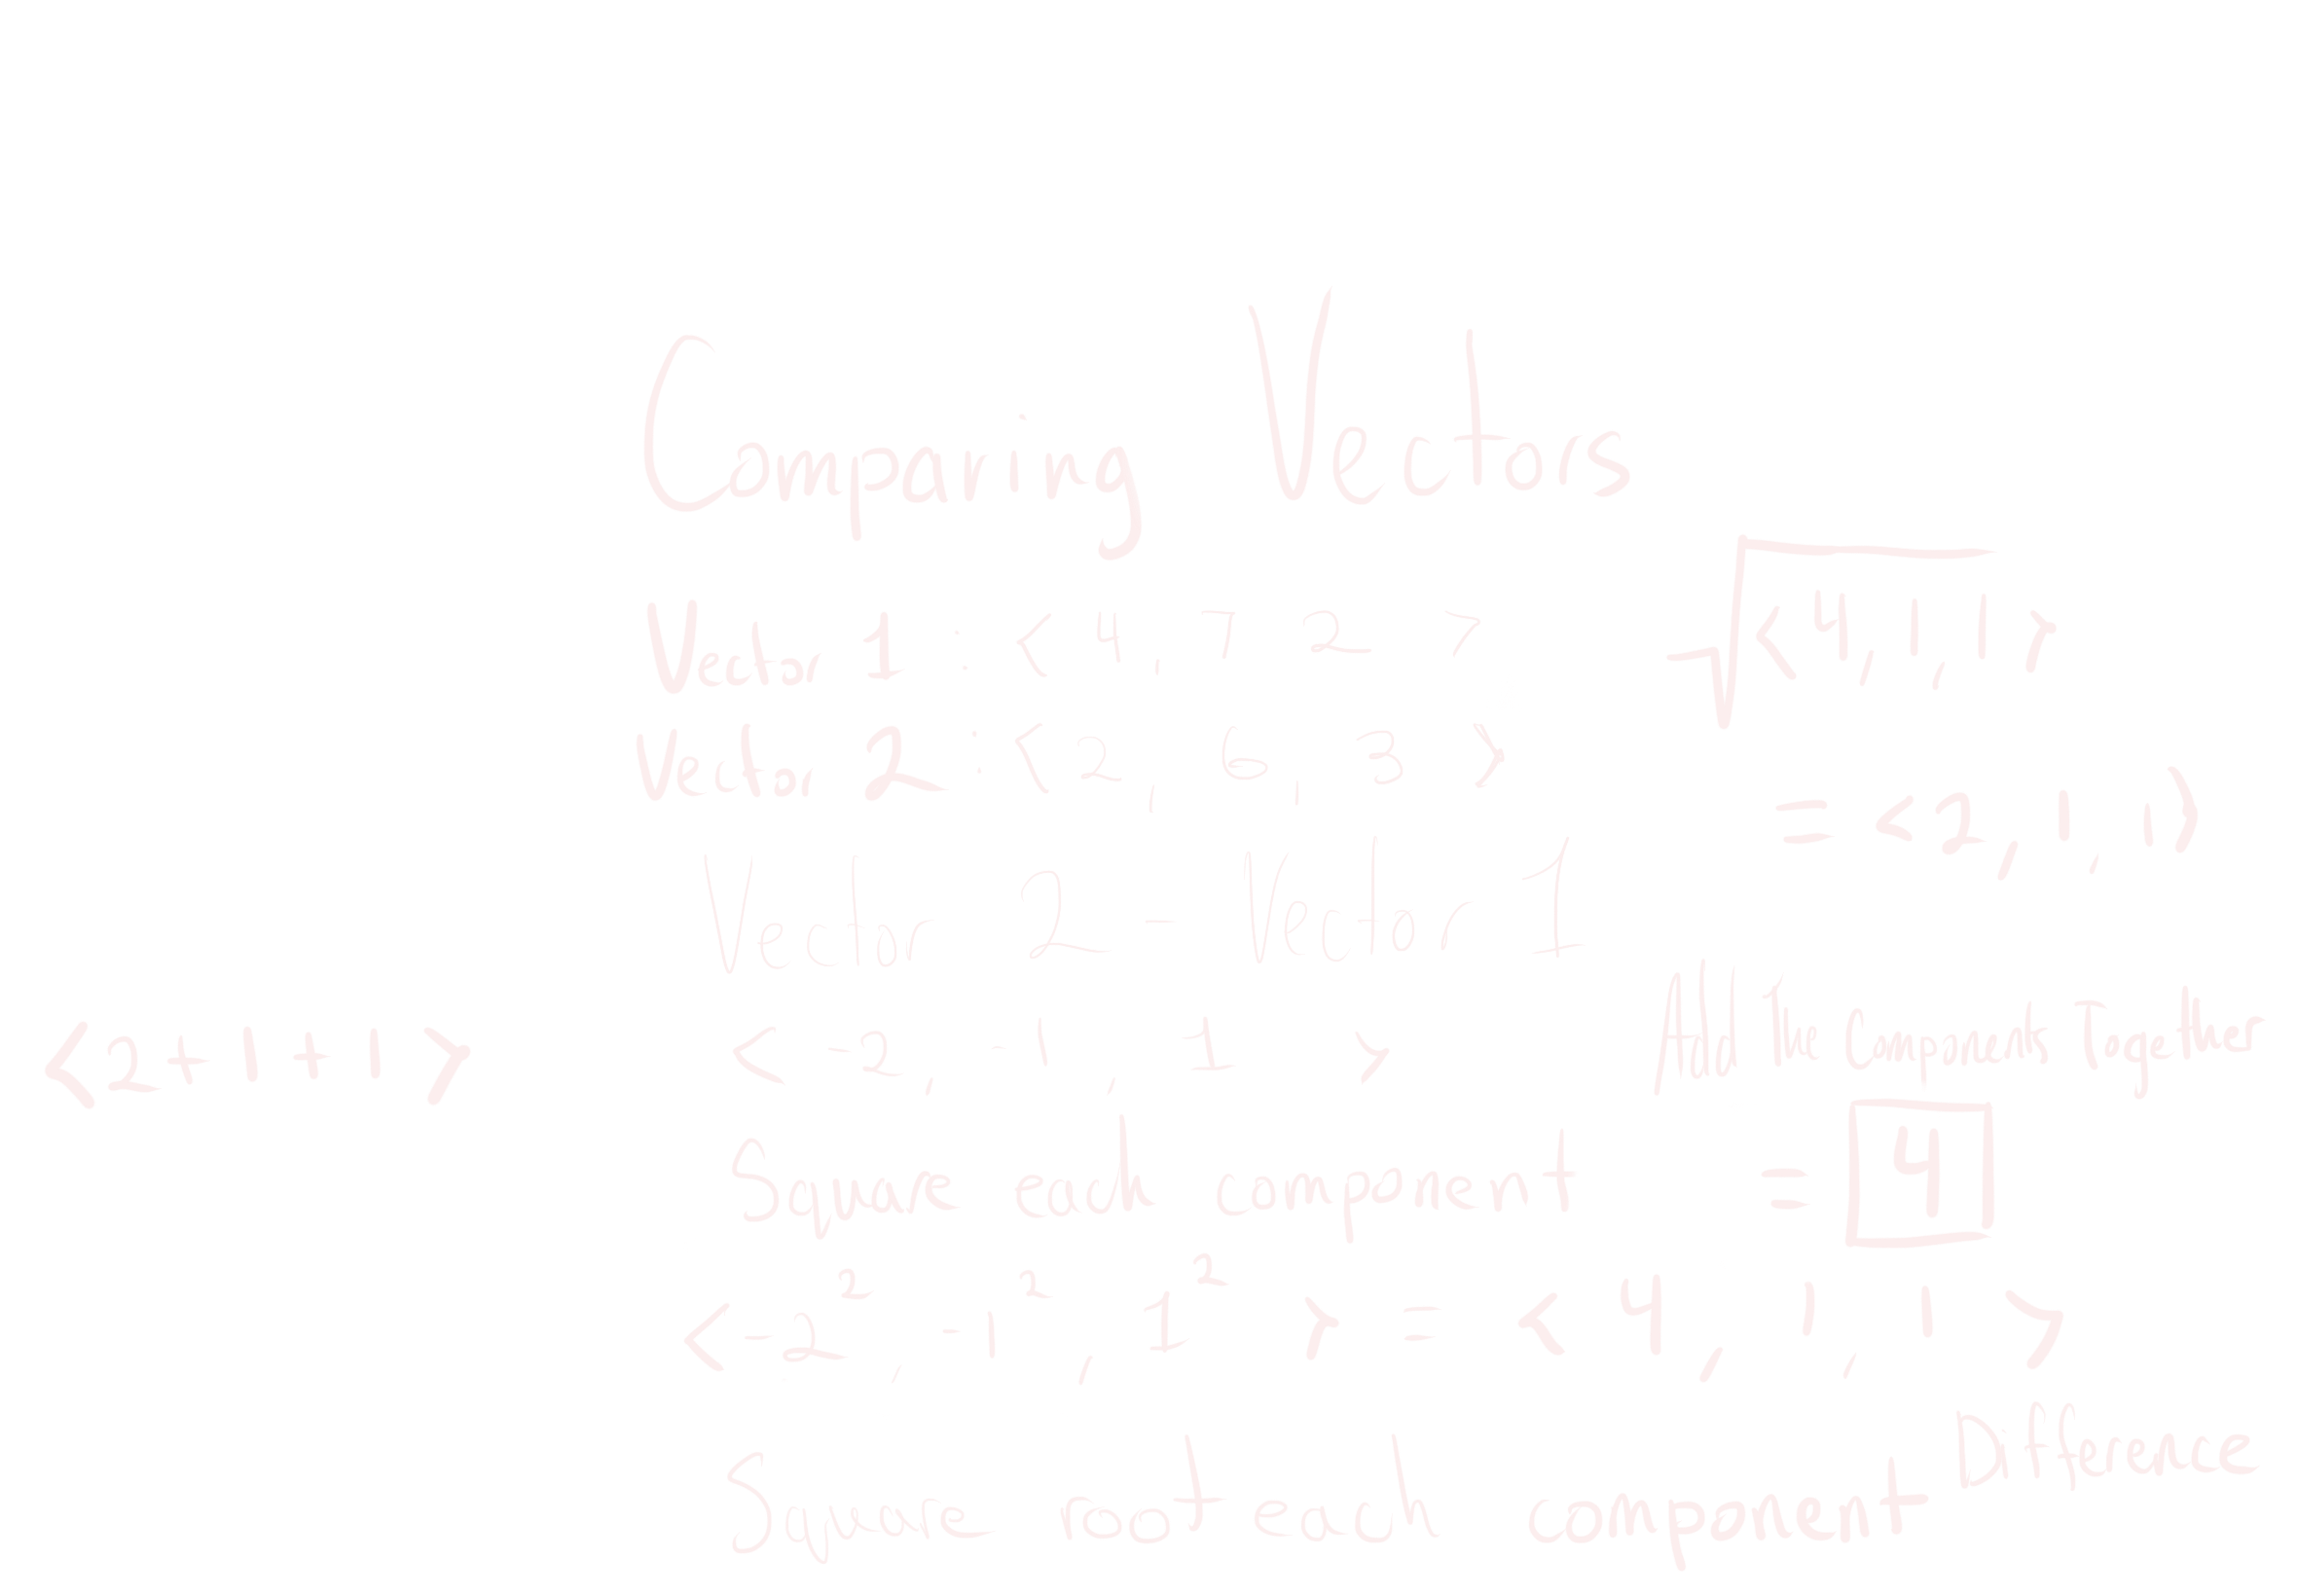 Comparing Vectors
Vector 1 : < 4, 7 2 >
Vector 2 : < 2, 6, 3 >
Vector 2 - Vector 1
< -2, -1, 1 >
Square each component
< -2², -1², 1² > = < 4, 1, 1 >
Square root each component
√< 4, 1, 1 >
= < 2, 1, 1 >
Add The Components Together
< 2 + 1 + 1 >
= 4
Difference